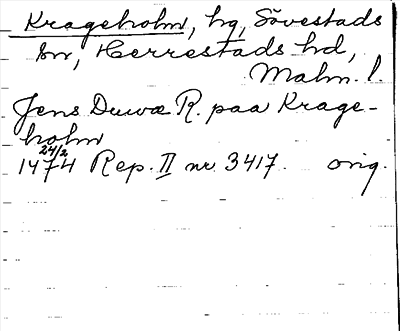 Krageholm, hg, Sövestads
sn, Herrestads hd,
Malm. l.
Jens Duwæ R. paa Krage-
holm
24/2
1474 Rep. II nr 3417. orig.